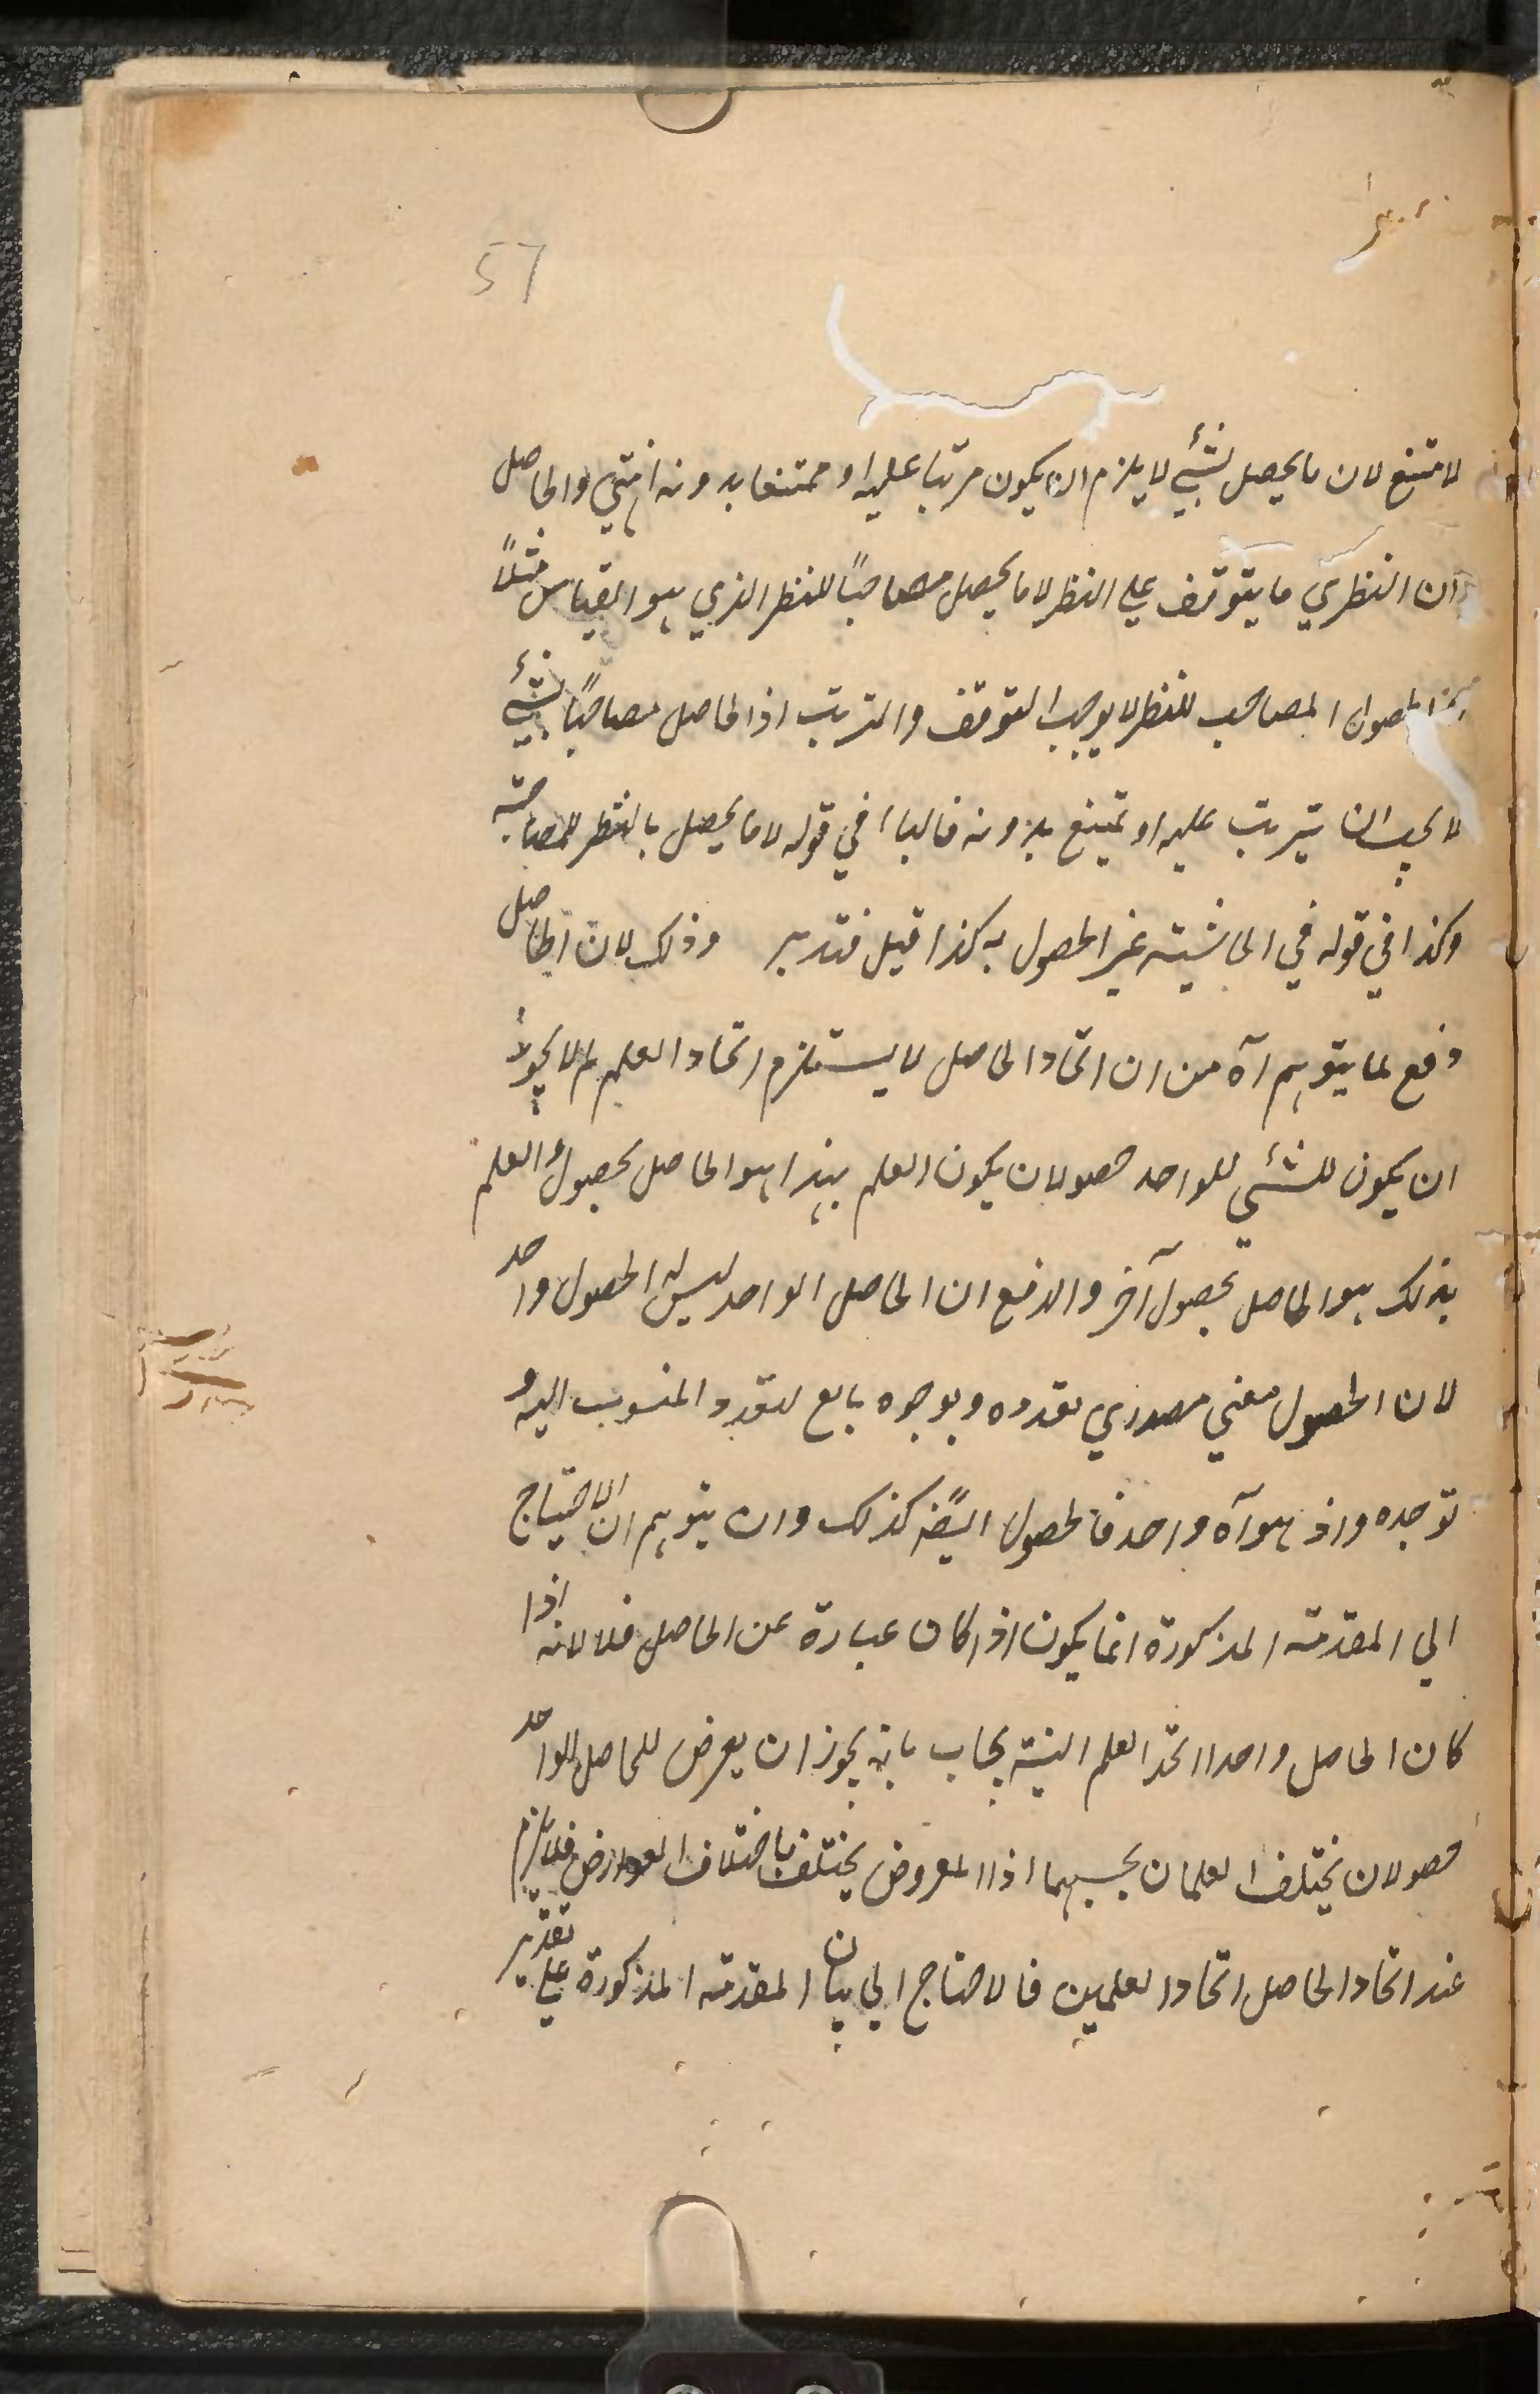 57
لامتنع لان ما يحصل بشيئ لا يلزم ان يكون مرتبا عليه او ممتنعا بدونه انتهي والحاصل
ان النظري ما يتوقف علي النظر لا ما يحصل مصاحبًا للنظر الذي هو القياس مثلًا
الحصول المصاحب للنظر لا يوجب التوقف والترتب اذ الحاصل مصاحبًا بشيئ
لا يجب ان يترتب عليه او يمتنع بدونه فالباء في قوله لا ما يحصل بالنظر للمصاحبة
وكذا في قوله في الحاشية غير الحصول به كذا قيل فتدبر وذلك لان الحاصل
دفع لما يتوهم آه من ان اتحاد الحاصل لا يستلزم اتحاد العلم لم لا يجوز
ان يكون للشيئ الواحد حصولان يكون العلم بهذا هو الحاصل بحصول والعلم
بذلك هو الحاصل بحصول آخر والدفع ان الحاصل الواحد ليس له الحصول واحد
لان الحصول معني مصدري تعدده وتوحده تابع لتعدد المنسوب اليه و
توحده واذ هو آه واحد فالحصول ايضًا كذلك وان يتوهم ان الاحتياج
الي المقدمة المذكورة انما يكون اذا كان عبارة عن الحاصل فلا لانه اذا
كان الحاصل واحدا اتحد العلم البتة يجاب بانه يجوز ان يعرض للحاصل الواحد
حصولان يختلف العلمان بحسبهما اذ المعروض يختلف باختلاف العوارض فلا يلزم
عند اتحاد الحاصل اتحاد العلمين فالاحتياج الي بيان المقدمة المذكورة علي تقدير